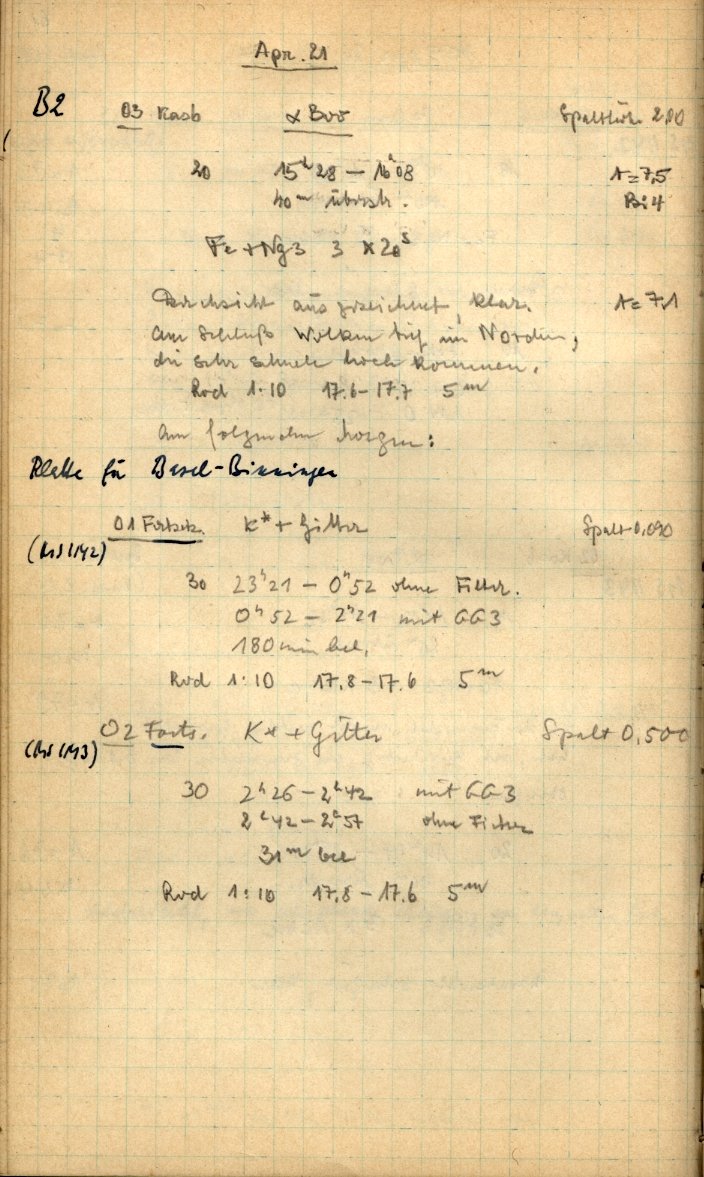 Apr. 21
B2 03 Kasb α Boo Spalthöh. 2,00
20 15h28 – 16h08 t = 7,5
40m überstr. Bi 4
Fe + Ng3 3 × 20s
Durchsicht ausgezeichnet, klar. t = 7,1
am Schluß Wolken tief im Norden,
die sehr schnell hoch kommen.
Rod 1:10 17.6 – 17.7 5m
Am folgenden Morgen:
Platte für Basel-Binningen
01 Fortsetz. K* + Gitter Spalt 0,090
30 23h21 – 0h52 ohne Filter.
0h52 – 2h21 mit GG3
180 min bel.
Rod 1:10 17.8 – 17.6 5m
02 Forts. K* + Gitter Spalt 0,500
30 2h26 – 2h42 mit GG3
2h42 – 2h57 ohne Filter
31m bel
Rod 1:10 17.8 – 17.6 5m